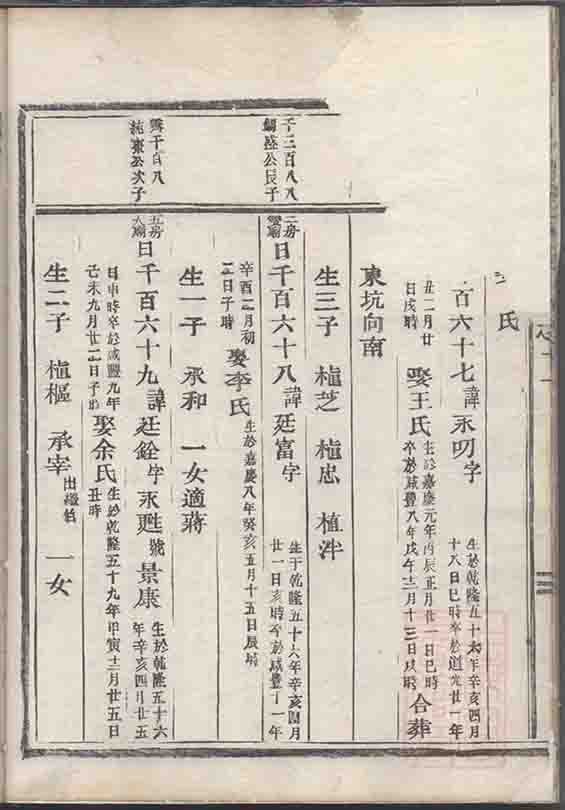 氏
百六十七諱永叨字
生於乾隆五十六年辛亥四月
十八日巳時卒於道光廿一年
丑二月廿
日戌時
娶王氏
生於嘉慶元年丙辰正月廿一日巳時
卒於咸豐八年戊午三月十三日戌時
合葬
東坑向南
生三子 植芝 植忠 植泮
千三百八八
錫盛公長子
二房
日千百六十八諱廷富字
生于乾隆五十六年辛亥四月
廿一日亥時卒於咸豐十一年
辛酉二月初
二日子時
娶李氏
生於嘉慶八年癸亥五月十五日辰時
生一子 承和 一女適蔣
五房
日千百六十九諱廷銓字永甦號景康
生於乾隆五十六
年辛亥四月廿五
日申時卒於咸豐九年
己未九月廿二日子時
娶余氏
生於乾隆五十九年甲寅十二月廿五日
丑時
生二子 植樞 承宰 出繼伯 一女